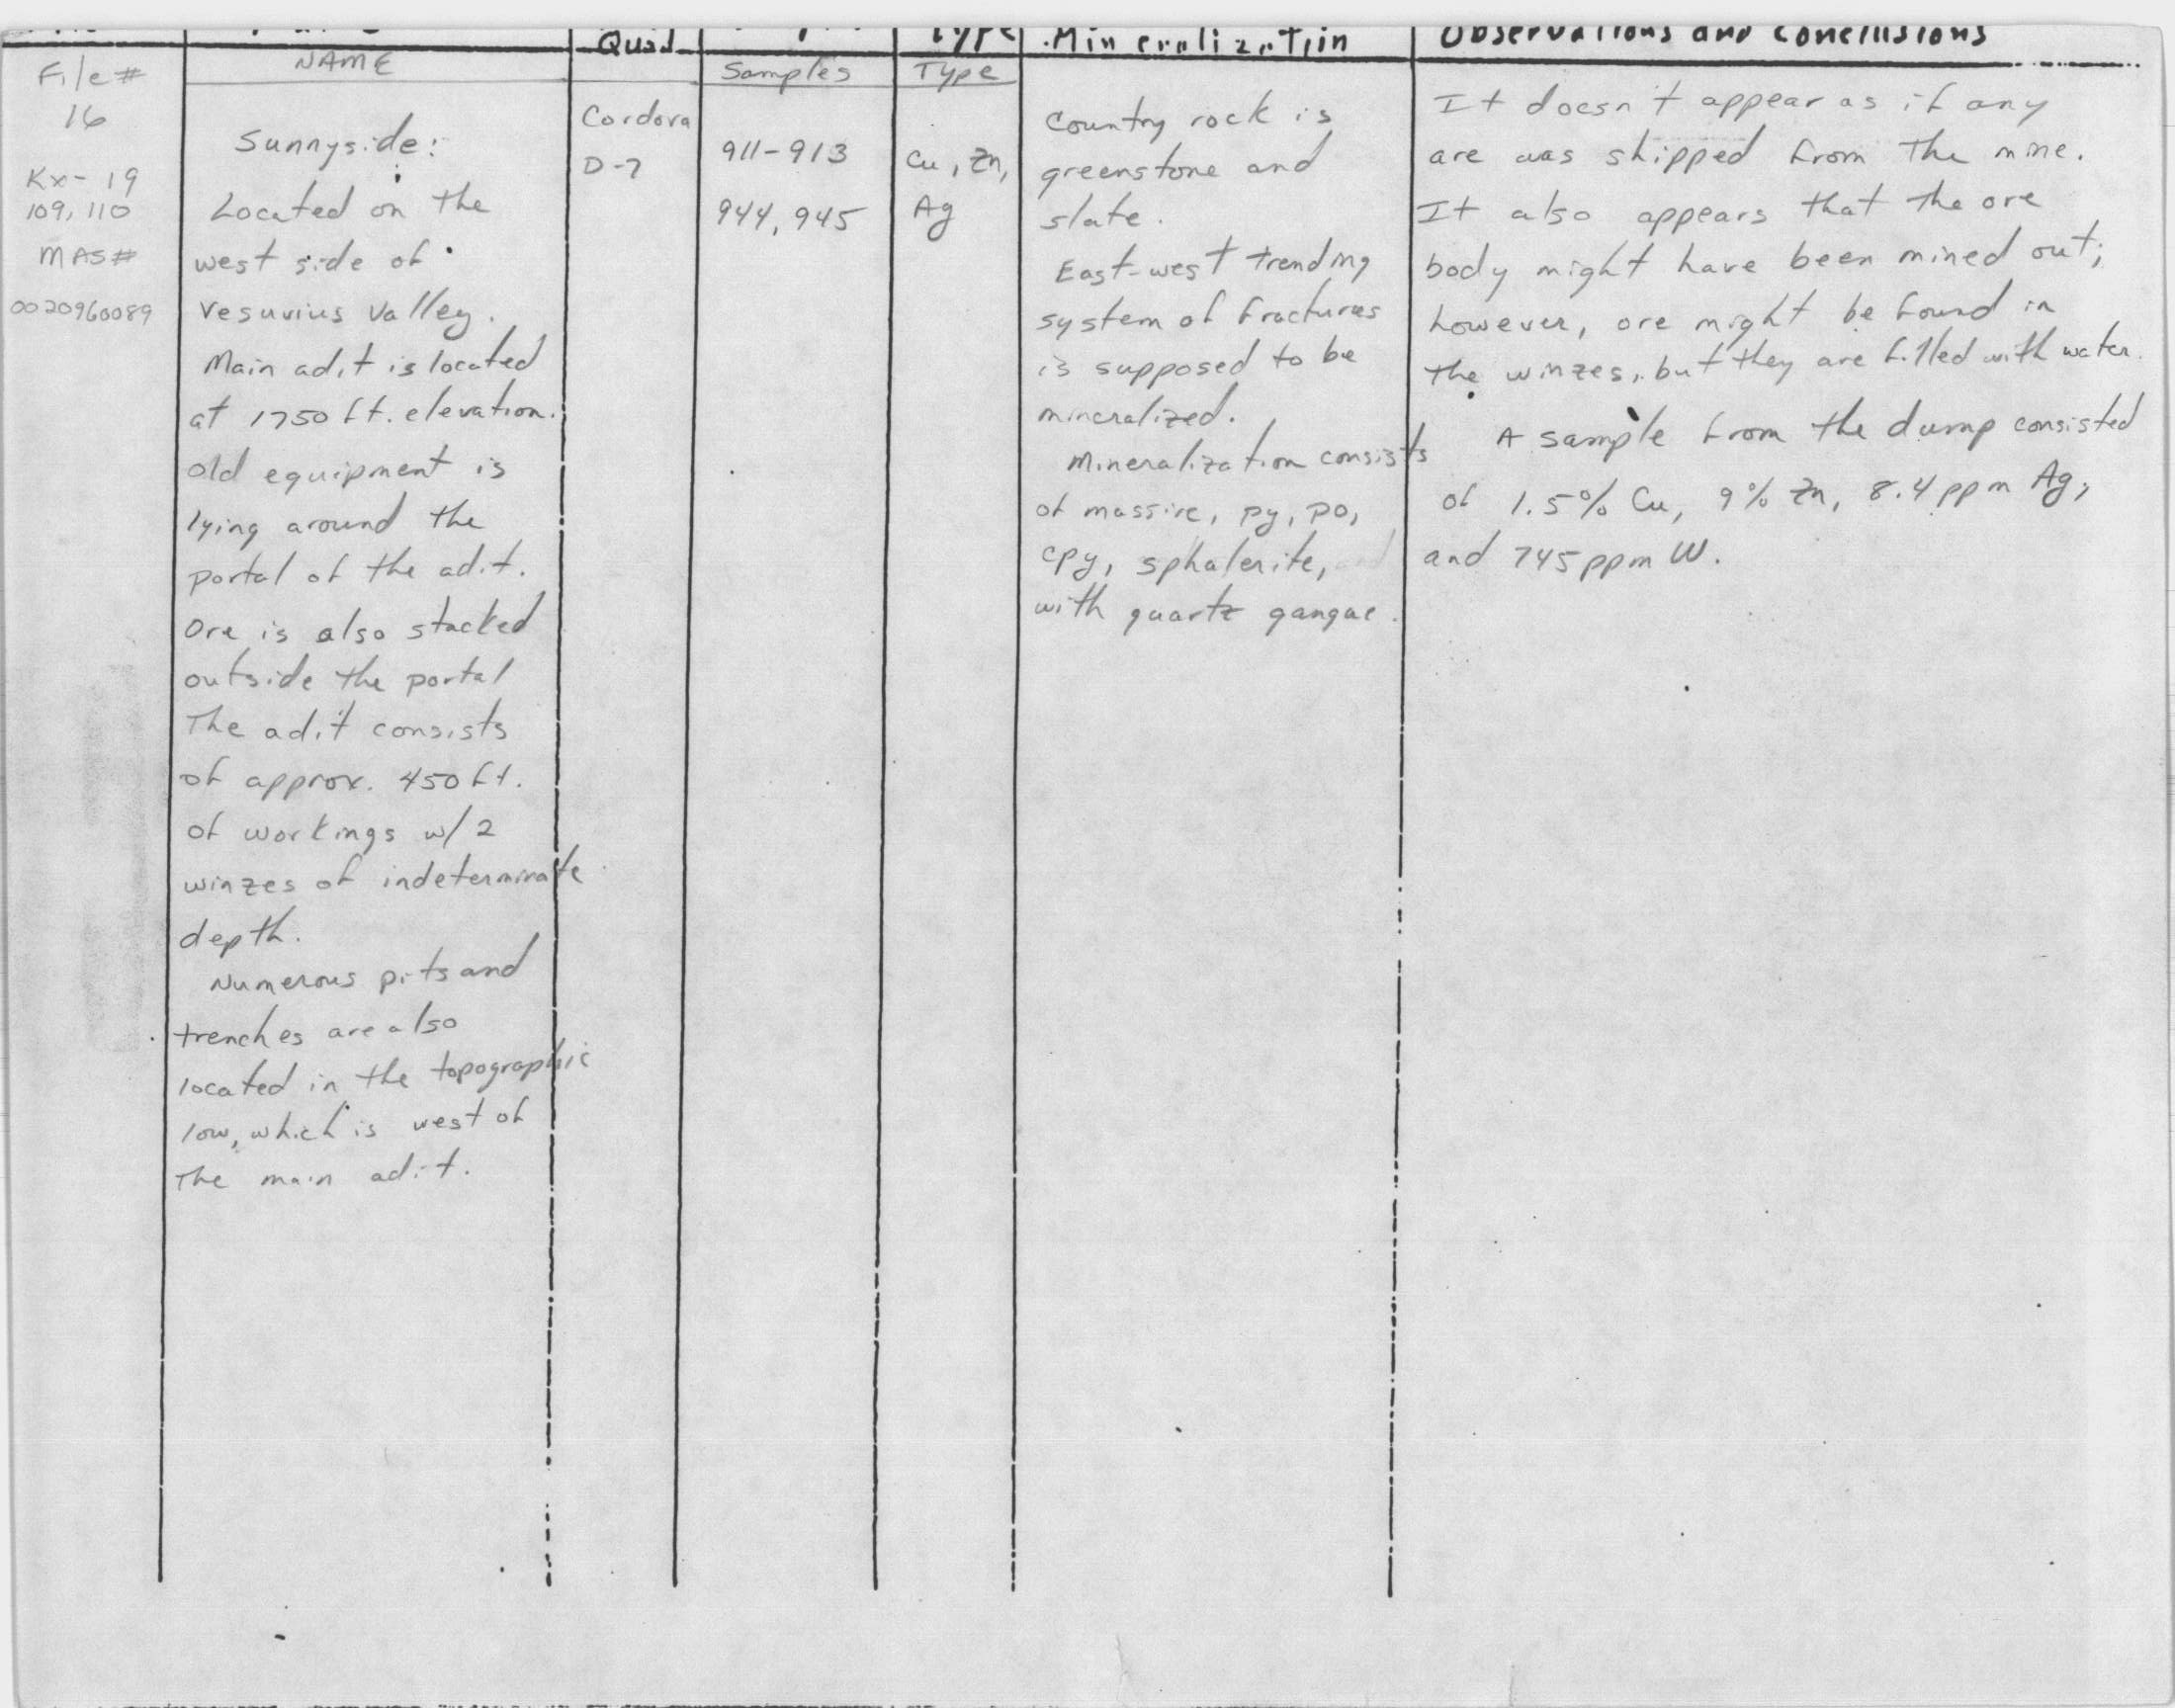 Quad
Type
Mineralization
Observations and Conclusions
File #
NAME
Samples
Type
16
Kx-19
109, 110
MAS#
0020960089
Sunnyside:
Located on the
west side of
Vesuvius Valley.
Main adit is located
at 1750 ft. elevation.
Old equipment is
lying around the
portal of the adit.
Ore is also stacked
outside the portal
The adit consists
of approx. 450 ft.
of workings w/ 2
winzes of indeterminate
depth.
Numerous pits and
trenches are also
located in the topographic
low, which is west of
the main adit.
Cordova
D-7
911-913
944, 945
Cu, Zn,
Ag
Country rock is
greenstone and
slate.
East-west trending
system of fractures
is supposed to be
mineralized.
Mineralization consists
of massive, py, po,
cpy, sphalerite,
with quartz gangue.
It doesn't appear as if any
are was shipped from the mine.
It also appears that the ore
body might have been mined out;
however, ore might be found in
the winzes, but they are filled with water.
A sample from the dump consisted
of 1.5% Cu, 9% Zn, 8.4 ppm Ag,
and 745 ppm W.